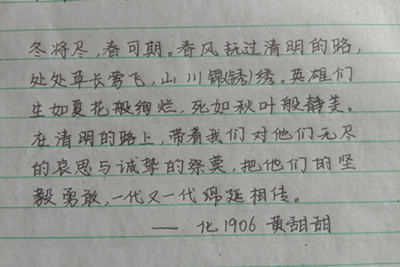 冬将尽，春可期。春风抚过清明的路，
处处草长莺飞，山川锦(锈)绣。英雄们
生如夏花般绚烂，死如秋叶般静美。
在清明的路上，带着我们对他们无尽
的哀思与诚挚的祭奠，把他们的坚
毅勇敢，一代又一代绵延相传。
——化1906 黄甜甜